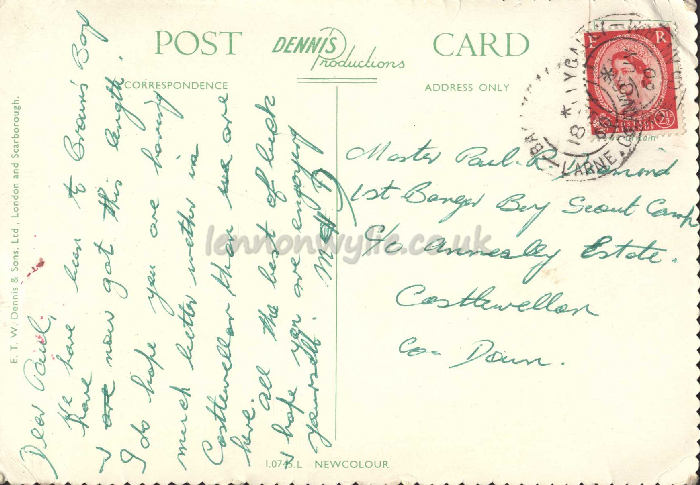 POST DENNIS Productions CARD
CORRESPONDENCE
ADDRESS ONLY
E. T. W. Dennis & Sons, Ltd., London and Scarborough.
Dear Paul,
We have been to Brown's Bay
& are now have got this length.
I do hope you are having
much better wether in
Castlewellan than we are
here.
all the best of luck
& hope you are enjoying
yourself.
Master Paul R.
1st Bangor Boy Scout Camp
C/o Annesley Estate.
Castlewellan
Co- Down.
LARNE
E R
lennonwylie.co.uk
NEWCOLOUR